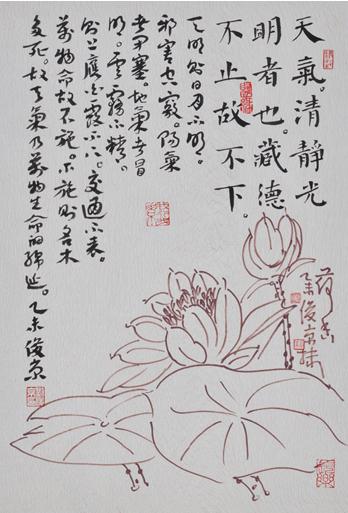 天氣。清靜光
明者也。藏德
不止故不下。
天明则日月不明。
邪害空竅。陽氣
者閉塞。地氣者冒
明。雲霧不精。
则上應白露不下。交通不表。
萬物命故不施。不施则名木
多死。故天氣乃萬物生命的綿延。乙未俊京
乙未俊京